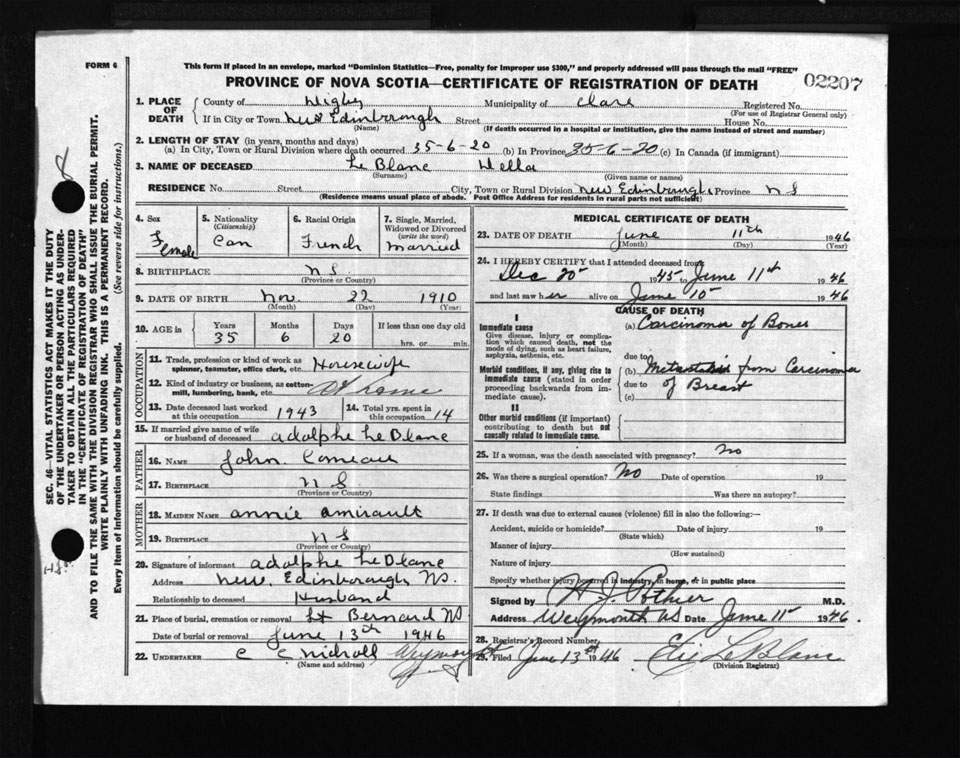 FORM 6
This form if placed in an envelope, marked "Dominion Statistics—Free, penalty for improper use $300," and properly addressed will pass through the mail "FREE"
PROVINCE OF NOVA SCOTIA—CERTIFICATE OF REGISTRATION OF DEATH
02207
1. PLACE OF DEATH
County of Digby Municipality of Clare Registered No.
(For use of Registrar General only)
If in City or Town New Edinborough Street House No.
(Name) (If death occurred in a hospital or institution, give the name instead of street and number)
2. LENGTH OF STAY (in years, months and days)
(a) In City, Town or Rural Division where death occurred 35-6-20 (b) In Province 35-6-20 (c) In Canada (if immigrant)
3. NAME OF DECEASED Le Blanc Della
(Surname) (Given name or names)
RESIDENCE No. Street City, Town or Rural Division New Edinborough Province N S
(Residence means usual place of abode. Post Office Address for residents in rural parts not sufficient)
4. Sex
Female
5. Nationality
(Citizenship)
Can
6. Racial Origin
French
7. Single, Married, Widowed or Divorced
(write the word)
Married
8. BIRTHPLACE N S
(Province or Country)
9. DATE OF BIRTH Nov. 22 1910
(Month) (Day) (Year)
10. AGE in
Years Months Days If less than one day old
35 6 20 hrs. or min.
OCCUPATION
11. Trade, profession or kind of work as spinner, teamster, office clerk, etc. Housewife
12. Kind of industry or business, as cotton-mill, lumbering, bank, etc. At Home
13. Date deceased last worked at this occupation 1943
14. Total yrs. spent in this occupation 14
15. If married give name of wife or husband of deceased Adolphe Le Blanc
FATHER
16. NAME John Comeau
17. BIRTHPLACE N S
(Province or Country)
MOTHER
18. MAIDEN NAME Annie Amirault
19. BIRTHPLACE N S
(Province or Country)
20. Signature of informant Adolphe Le Blanc
Address New Edinborough NS.
Relationship to deceased Husband
21. Place of burial, cremation or removal St Bernard NS
Date of burial or removal June 13th 1946
22. UNDERTAKER C C Nicholl Weymouth
(Name and address)
MEDICAL CERTIFICATE OF DEATH
23. DATE OF DEATH June 11th 1946
(Month) (Day) (Year)
24. I HEREBY CERTIFY that I attended deceased from
Dec 20 1945 to June 11th 1946
and last saw her alive on June 10 1946
CAUSE OF DEATH
I
Immediate cause
Give disease, injury or complication which caused death, not the mode of dying, such as heart failure, asphyxia, asthenia, etc.
(a) Carcinoma of Bones
due to
Morbid conditions, if any, giving rise to immediate cause (stated in order proceeding backwards from immediate cause).
(b) from Carcinoma
due to of Breast
(c)
II
Other morbid conditions (if important) contributing to death but not causally related to immediate cause.
25. If a woman, was the death associated with pregnancy? No
26. Was there a surgical operation? No Date of operation 19
State findings Was there an autopsy?
27. If death was due to external causes (violence) fill in also the following:—
Accident, suicide or homicide? Date of injury 19
(State which)
Manner of injury
(How sustained)
Nature of injury
Specify whether injury occurred in industry, in home, or in public place
Signed by H J. Pothier M.D.
Address Weymouth NS Date June 11 1946
28. Registrar's Record Number
29. Filed June 13th 1946 Elie Le Blanc
(Division Registrar)
SEC. 46—VITAL STATISTICS ACT MAKES IT THE DUTY
OF THE UNDERTAKER OR PERSON ACTING AS UNDER-
TAKER TO OBTAIN ALL THE PARTICULARS REQUIRED
IN THE "CERTIFICATE OF REGISTRATION OF DEATH"
AND TO FILE THE SAME WITH THE DIVISION REGISTRAR WHO SHALL ISSUE THE BURIAL PERMIT.
WRITE PLAINLY WITH UNFADING INK. THIS IS A PERMANENT RECORD.
Every item of information should be carefully supplied. (See reverse side for instructions.)
8